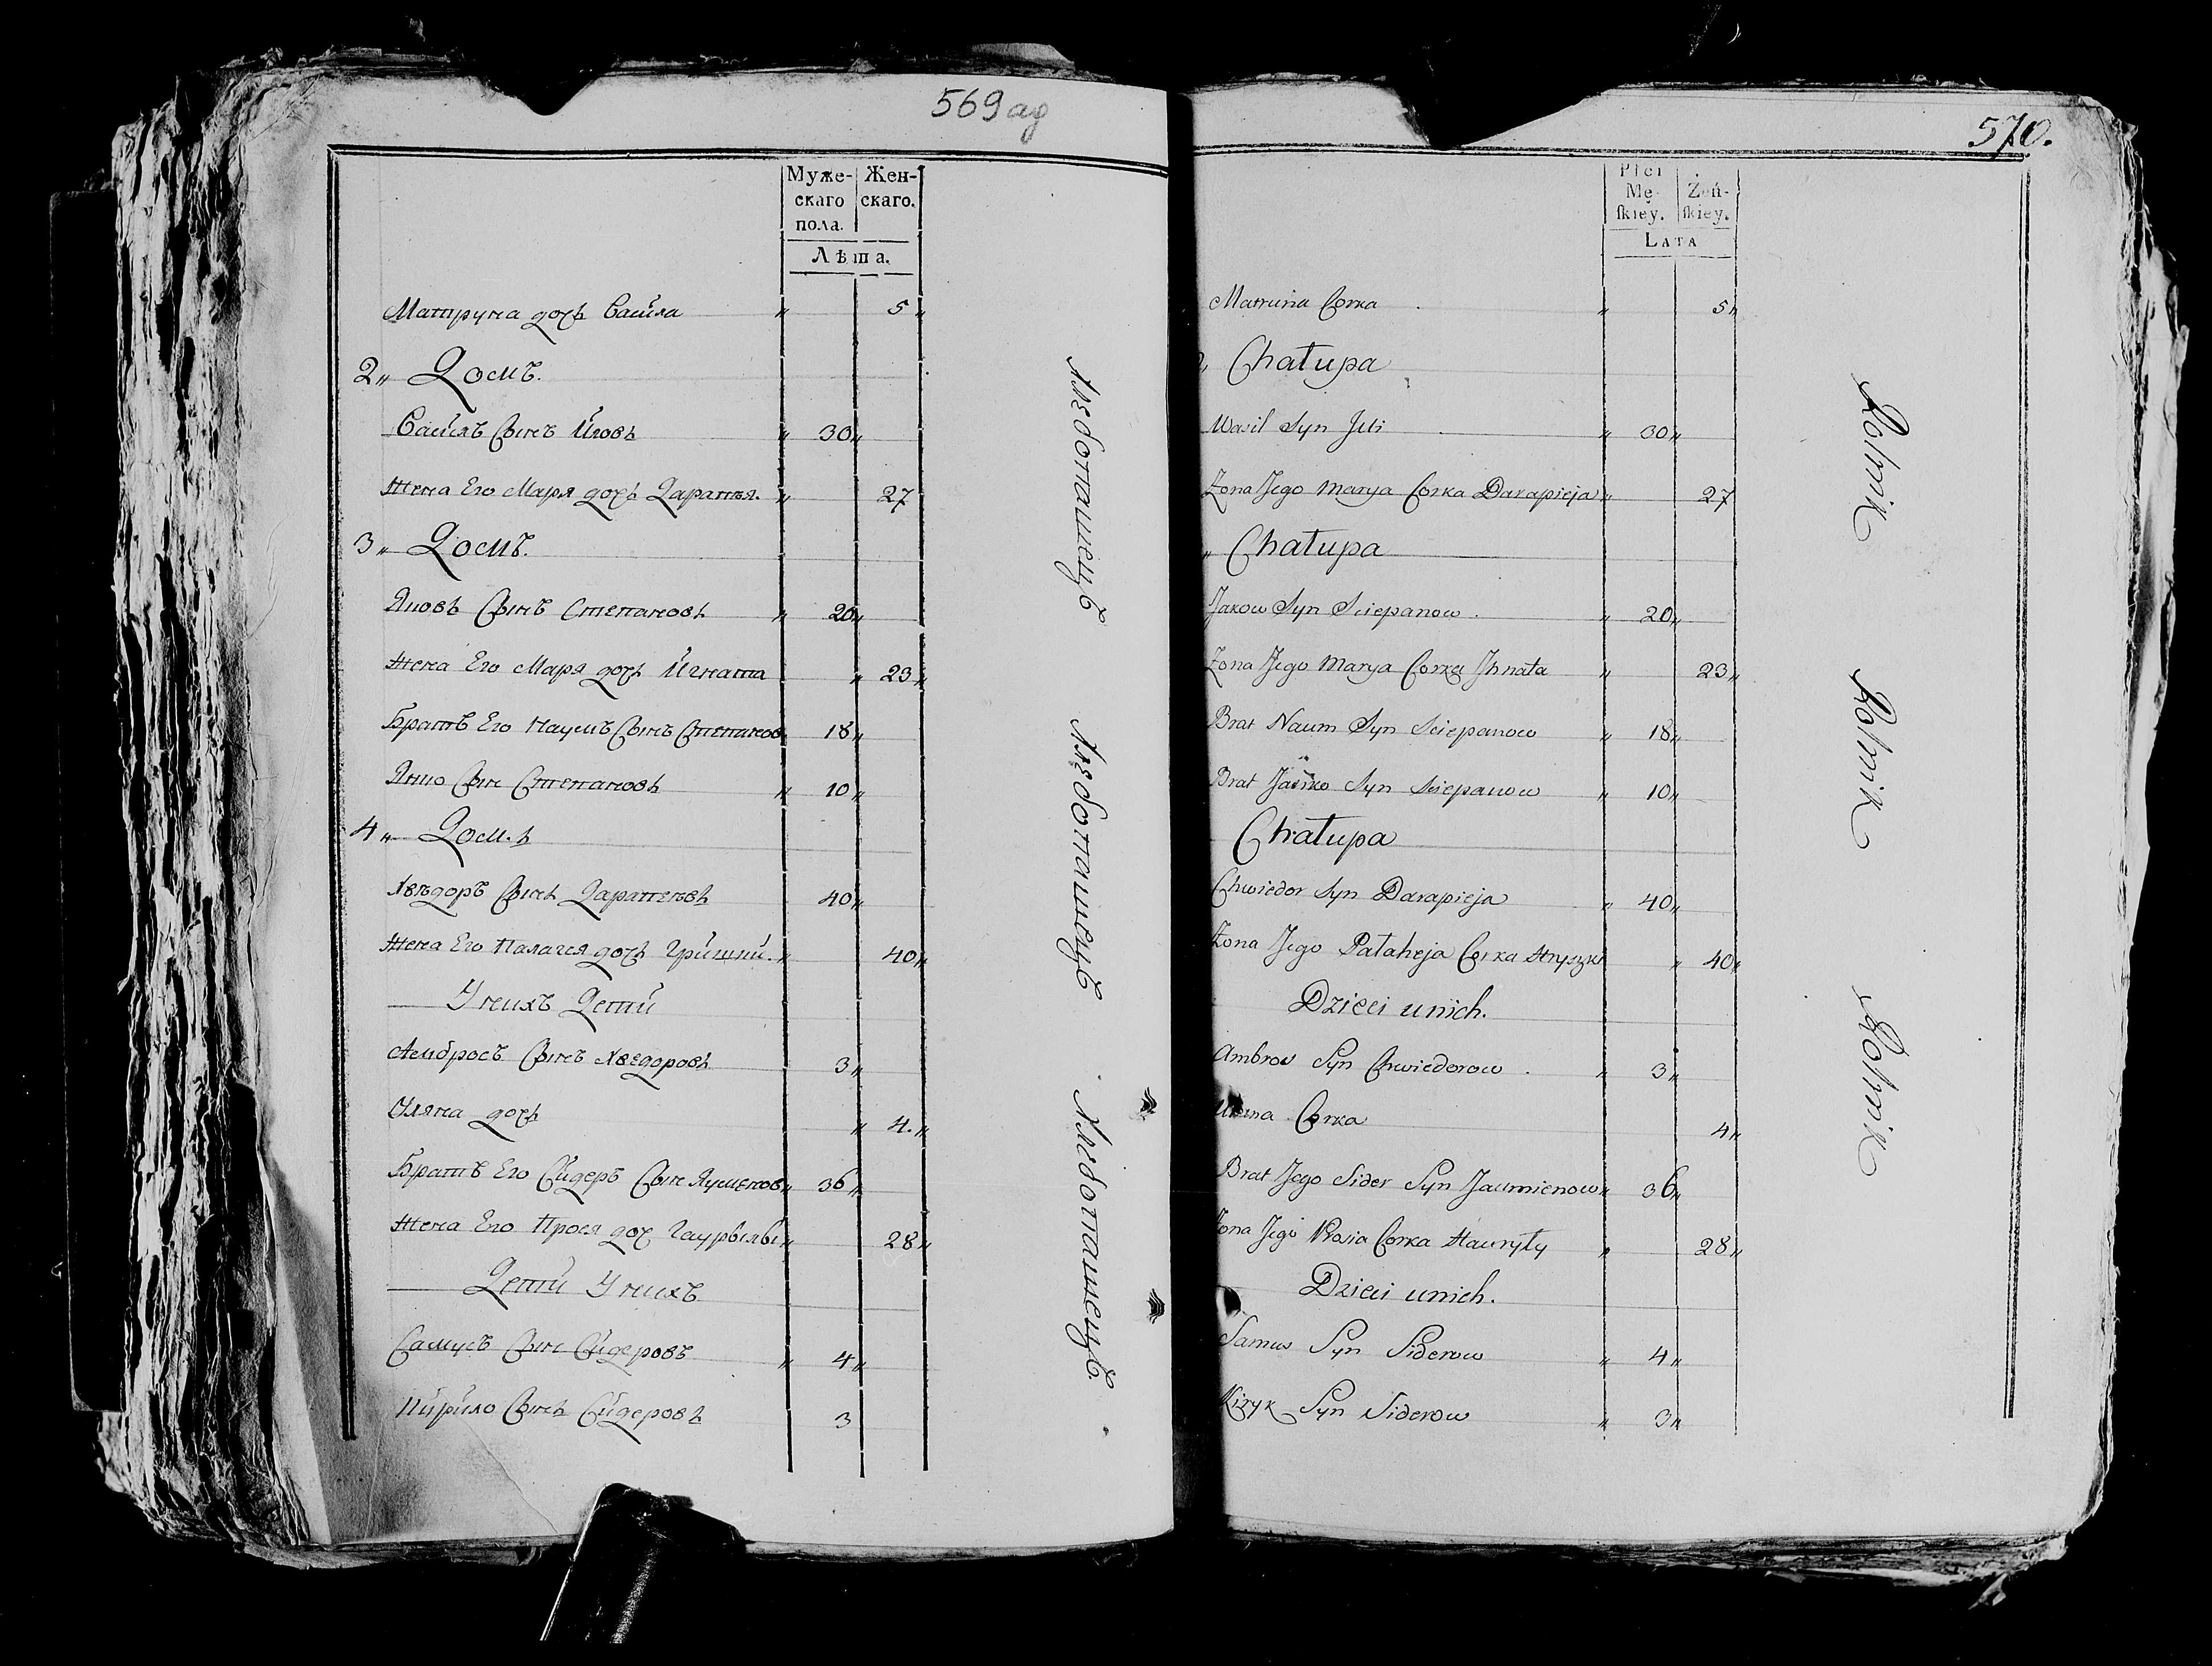 569 ад
Муже-
скаго
пола.
Жен-
скаго.
Лѣта.
Матруна дочь Васила 5
2 Домъ.
Василь Сынъ Иовь 30
Жена Его Маря дочь Дарапея. 27
3 Домъ.
Яковь Сынъ Степановь 20
Жена Его Маря дочь Игната 23
Братъ Его Наумъ Сынъ Степанов 18
Янко Сын Степановь 10
4 Дом.ь
Хвѣдоръ Сынь Дарапеевь 40
Жена Его Палагея дочь Гришки. 40
У нихъ Дети
Амбросъ Сынъ Хведоровь 3
Уляна дочь 4.
Братъ Его Сидеръ Сын Яуменов 36
Жена Его Прося доч Гаурылы 28
Дети У нихъ
Самусъ Сын Сидеровъ 4
Кирило Сынь Сидеровь 3
Хлеботашецъ
Хлеботашецъ
Хлеботашецъ
570.
Płci
Mę-
ſkiey.
Żeń-
ſkiey.
LATA
Matruna Corka 5
Chałupa
Wasil Syn 30
Zona Jego Marya Corka Darapieja 27
Chałupa
Jakow Syn Sciepanow 20
Zona Jego Marya Corka Jhnata 23
Brat Naum Syn Sciepanow 18
Brat Jaśko Syn Sciepanow 10
Chałupa
Chwiedor Syn Darapieja 40
Zona Jego Pałaheja Corka Hryszki 40
Dzieci unich.
Ambros Syn Chwiedorow 3
Corka 4
Brat Jego Sider Syn Jaumienow 36
Zona Jego Prosia Corka Hauryły 28
Dzieci unich.
Samus Syn Siderow 4
Kiryk Syn Siderow 3
Rolnik
Rolnik
Rolnik